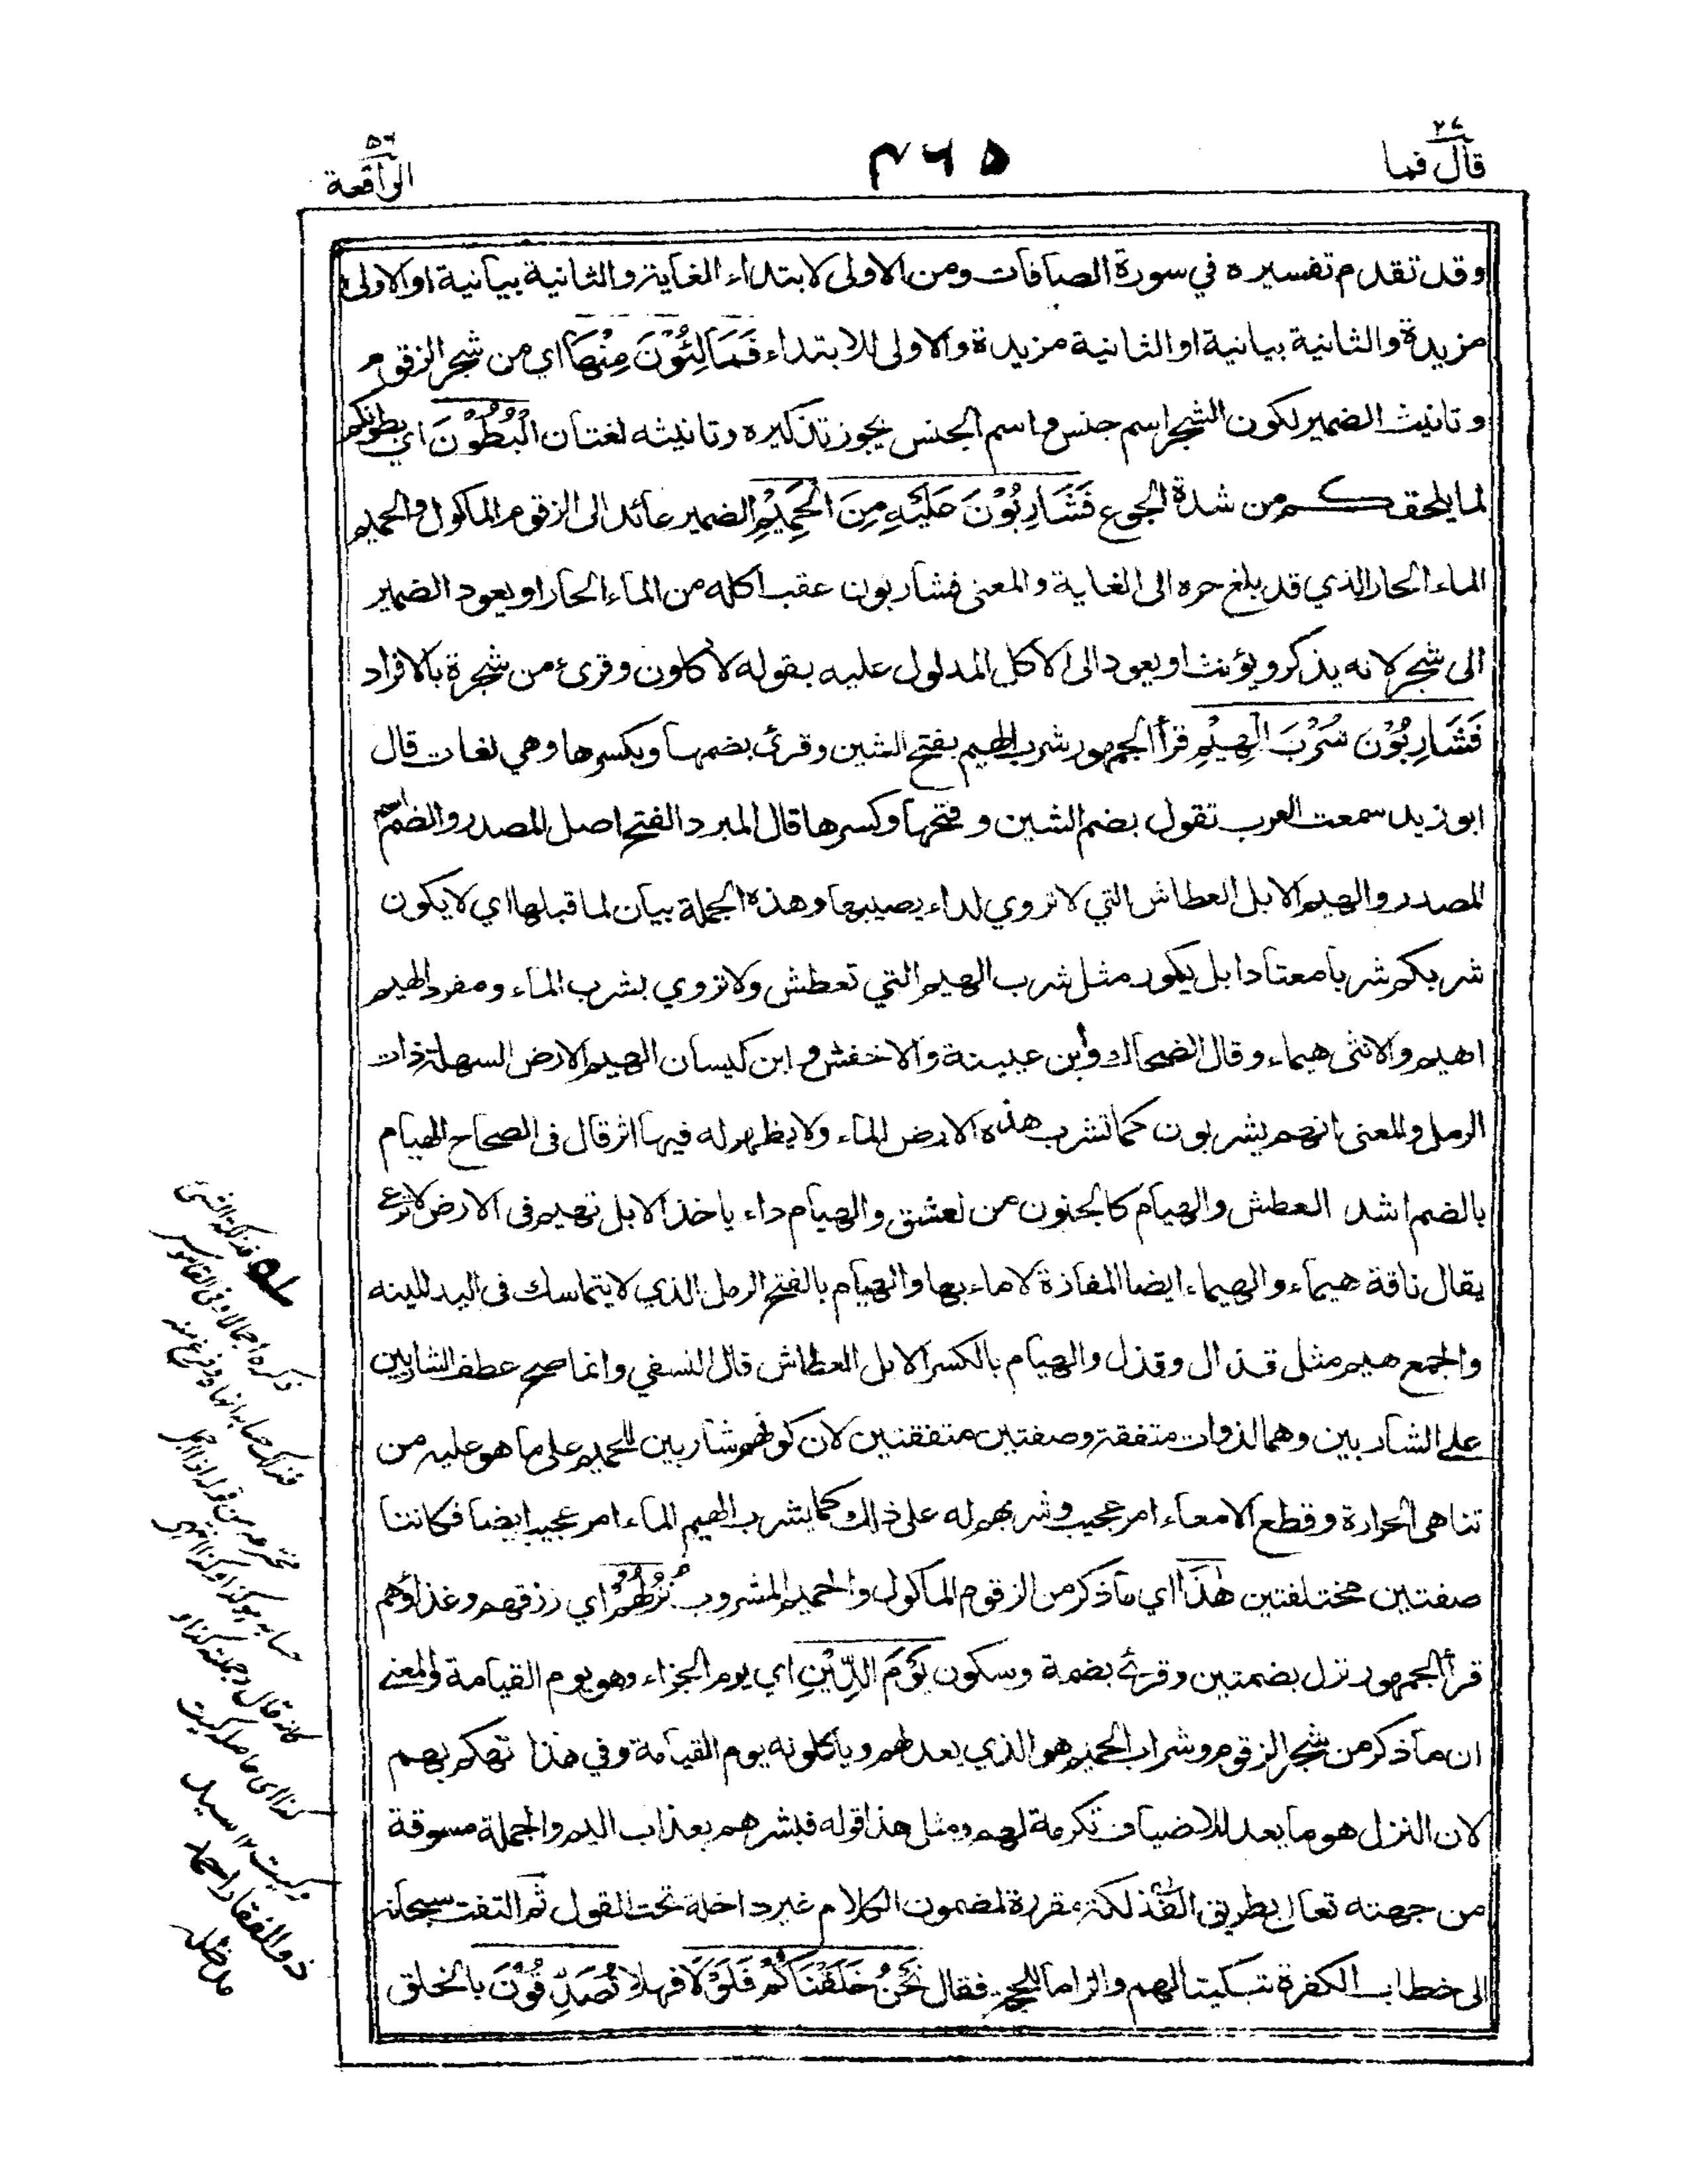 قال فما ٢٧
٤٦٥
الواقعة ٥٦
وقد تقدم تفسيره في سورة الصافات ومن الاولى لابتداء الغاية والثانية بيانية او الاولى
مزيدة والثانية بيانية او الثانية مزيدة والاولى للابتداء فَمَالِئُوْنَ مِنْهَا اي من شجر الزقوم
وتانيث الضمير لكون الشجر اسم جنس واسم الجنس يجوز تذكيره وتانيثه لغتان الْبُطُوْنَ اي بطونكم
لما يلحقكم من شدة الجوع فَشَارِبُوْنَ عَلَيْهِ مِنَ الْحَمِيْمِ الضمير عائد الى الزقوم الماكول والحميم
الماء الحار الذي قد بلغ حره الى الغاية والمعنى فشاربون عقب اكله من الماء الحار او يعود الضمير
الى شجر لانه يذكر ويؤنث او يعود الى الاكل المدلول عليه بقوله لاكلون وقرئ من شجرة بالافراد
فَشَارِبُوْنَ شُرْبَ الْهِيْمِ قرأ الجمهور شرب الهيم بفتح الشين وقرئ بضمها وبكسرها وهي لغات قال
ابو زيد سمعت العرب تقول بضم الشين وفتحها وكسرها قال المبرد الفتح اصل المصدر والضم اسم
المصدر والهيم الابل العطاش التي لا تروي لداء يصيبها وهذه الجملة بيان لما قبلها اي لا يكون
شربكم شربا معتادا بل يكون مثل شرب الهيم التي تعطش ولا تروي بشرب الماء ومفرد الهيم
اهيم والانثى هيماء وقال الضحاك وابن عيينة والاخفش وابن كيسان الهيم الارض السهلة ذات
الرمل والمعنى انهم يشربون كما تشرب هذه الارض الماء ولا يظهر له فيها اثر قال فى الصحاح الهيام
بالضم اشد العطش والهيام كالجنون من العشق والهيام داء ياخذ الابل تهيم فى الارض لا ترعى
يقال ناقة هيماء والهيماء ايضا المفازة لا ماء بها والهيام بالفتح الرمل الذي لا يتماسك فى اليد للينه
والجمع هيم مثل قذال وقذل والهيام بالكسر الابل العطاش قال النسفي وانما صح عطف الشاربين
على الشاربين وهما لذوات متفقة وصفتين متفقتين لان كونهم شاربين للحميم على ما هو عليه من
تناهى الحرارة وقطع الامعاء امر عجيب وشربهم له على ذلك كما يشرب الهيم الماء امر عجيب ايضا فكانتا
صفتين مختلفتين هٰذَا اي ما ذكر من الزقوم الماكول والحميم المشروب نُزُلُهُمْ اي رزقهم وغذاؤهم
قرأ الجمهور نزل بضمتين وقرئ بضمة وسكون يَوْمَ الدِّيْنِ اي يوم الجزاء وهو يوم القيامة والمعنى
ان ما ذكر من شجر الزقوم وشراب الحميم هو الذي يعد لهم وياكلونه يوم القيامة وفي هذا تهكم بهم
لان النزل هو ما يعد للاضياف تكرمة لهم ومثل هذا قوله فبشرهم بعذاب اليم والجملة مسوقة
من جهته تعالى بطريق الفذلكة مقررة لمضمون الكلام غير داخلة تحت القول ثم التفت سبحانه
الى خطاب الكفرة تبكيتا لهم والزاما للحجة فقال نَحْنُ خَلَقْنَاكُمْ فَلَوْلَا فهلا تُصَدِّقُوْنَ بالخلق
له فذلكة الشئ
ذكره اجمالا وفى القاموس
فذلك حسابه انهاه وفرغ منه
مخترعة من قوله اذا اجمل
حسابه
ذوالفقار احمد
مد ظله